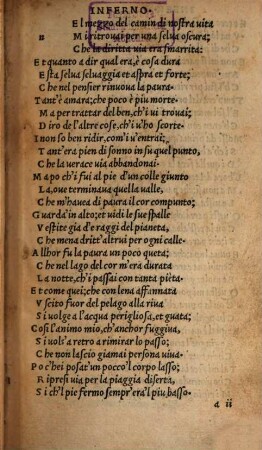 INFERNO.
El mezzo del camin di nostra vita
Mi ritrouai per una selua oscura;
Che la diritta uia era smarrita:
Et quanto a dir qual era, è cosa dura
Esta selua seluaggia et aspra et forte;
Che nel pensier rinuoua la paura.
Tant'è amara; che poco è piu morte.
Ma per trattar del ben, ch'i ui trouai;
Diro de l'altre cose, ch'i u'ho scorte.
I non so ben ridir, com'i u'entrai;
Tant'era pien di sonno in su quel punto,
Che la uerace uia abbandonai.
Ma po ch'i fui al pie d'un colle giunto
La, oue terminaua quella ualle,
Che m'hauea di paura il cor compunto;
Guarda'in alto; et uidi le sue spalle
Vestite gia d'e raggi del pianeta,
Che mena dritt'altrui per ogni calle.
Allhor fu la paura un poco queta;
Che nel lago del cor m'era durata
La notte, ch'i passai con tanta pieta.
Et come quei; che con lena affannata
Vscito fuor del pelago alla riua
Si uolge a l'acqua perigliosa, et guata;
Cosi l'animo mio, ch'anchor fuggiua,
Si uols'a retro a rimirar lo passo;
Che non lascio giamai persona uiua.
Poc'hei posat'un pocco'l corpo lasso;
Ripresi uia per la piaggia diserta,
Si ch'l pie fermo sempr'era'l piu basso.
a ii